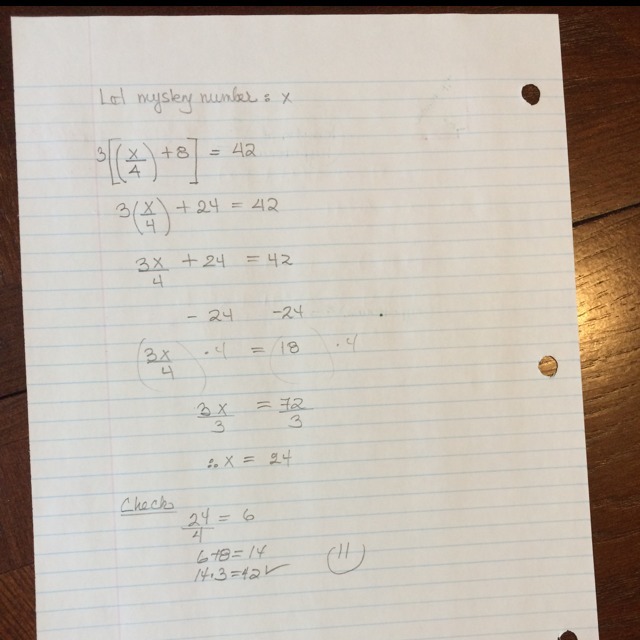 Let mystery number = x
3[(x/4) + 8] = 42
3(x/4) + 24 = 42
3x/4 + 24 = 42
- 24 -24
(3x/4) · 4 = (18) · 4
3x/3 = 72/3
∴ x = 24
Check
24/4 = 6
6+8=14
14·3=42 ✓
(11)